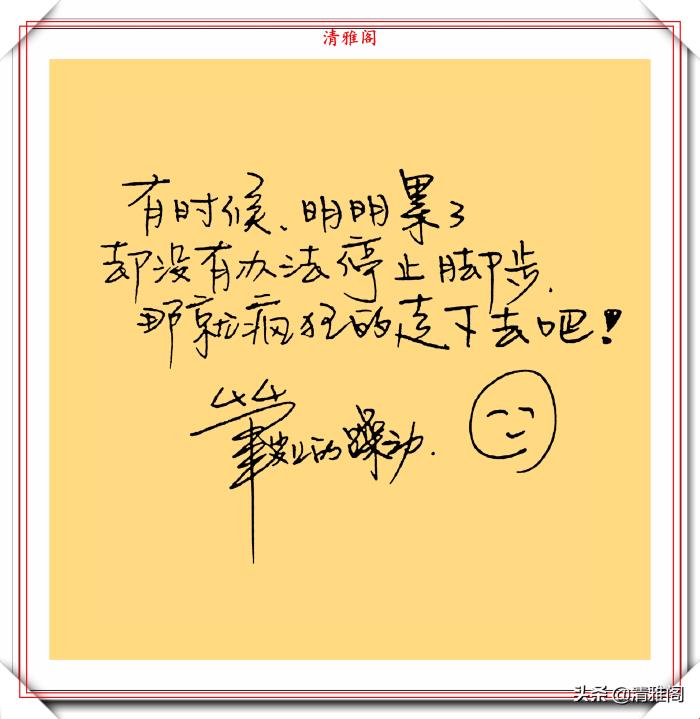 清雅阁
有时候、明明累了
却没有办法停止脚步.
那就疯狂的走下去吧！
笔尖上的躁动.
头条 @清雅阁